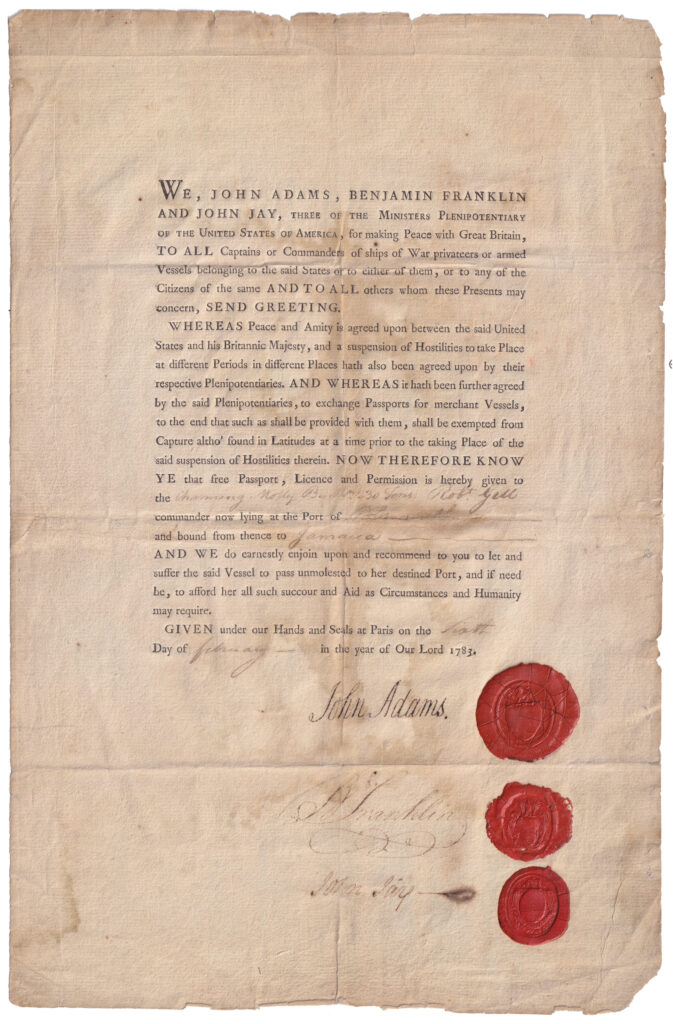 WE, JOHN ADAMS, BENJAMIN FRANKLIN
AND JOHN JAY, THREE OF THE MINISTERS PLENIPOTENTIARY
OF THE UNITED STATES OF AMERICA, for making Peace with Great Britain,
TO ALL Captains or Commanders of ships of War privateers or armed
Vessels belonging to the said States or to either of them, or to any of the
Citizens of the same AND TO ALL others whom these Presents may
concern, SEND GREETING.
WHEREAS Peace and Amity is agreed upon between the said United
States and his Britannic Majesty, and a suspension of Hostilities to take Place
at different Periods in different Places hath also been agreed upon by their
respective Plenipotentiaries. AND WHEREAS it hath been further agreed
by the said Plenipotentiaries, to exchange Passports for merchant Vessels,
to the end that such as shall be provided with them, shall be exempted from
Capture altho' found in Latitudes at a time prior to the taking Place of the
said suspension of Hostilities therein. NOW THEREFORE KNOW
YE that free Passport, Licence and Permission is hereby given to
the Charming Molly Robt Gill
commander now lying at the Port of
and bound from thence to Jamaica
AND WE do earnestly enjoin upon and recommend to you to let and
suffer the said Vessel to pass unmolested to her destined Port, and if need
be, to afford her all such succour and Aid as Circumstances and Humanity
may require.
GIVEN under our Hands and Seals at Paris on the
Day of february in the year of Our Lord 1783.
John Adams.
B Franklin
John Jay